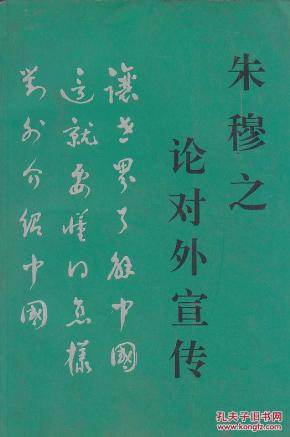 朱穆之
论对外宣传
让世界了解中国
这就要懂得怎样
對外介绍中國
孔夫子旧书网
www.kongfz.com